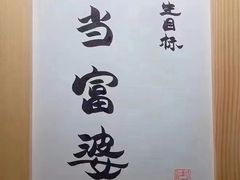 生目标
当富婆